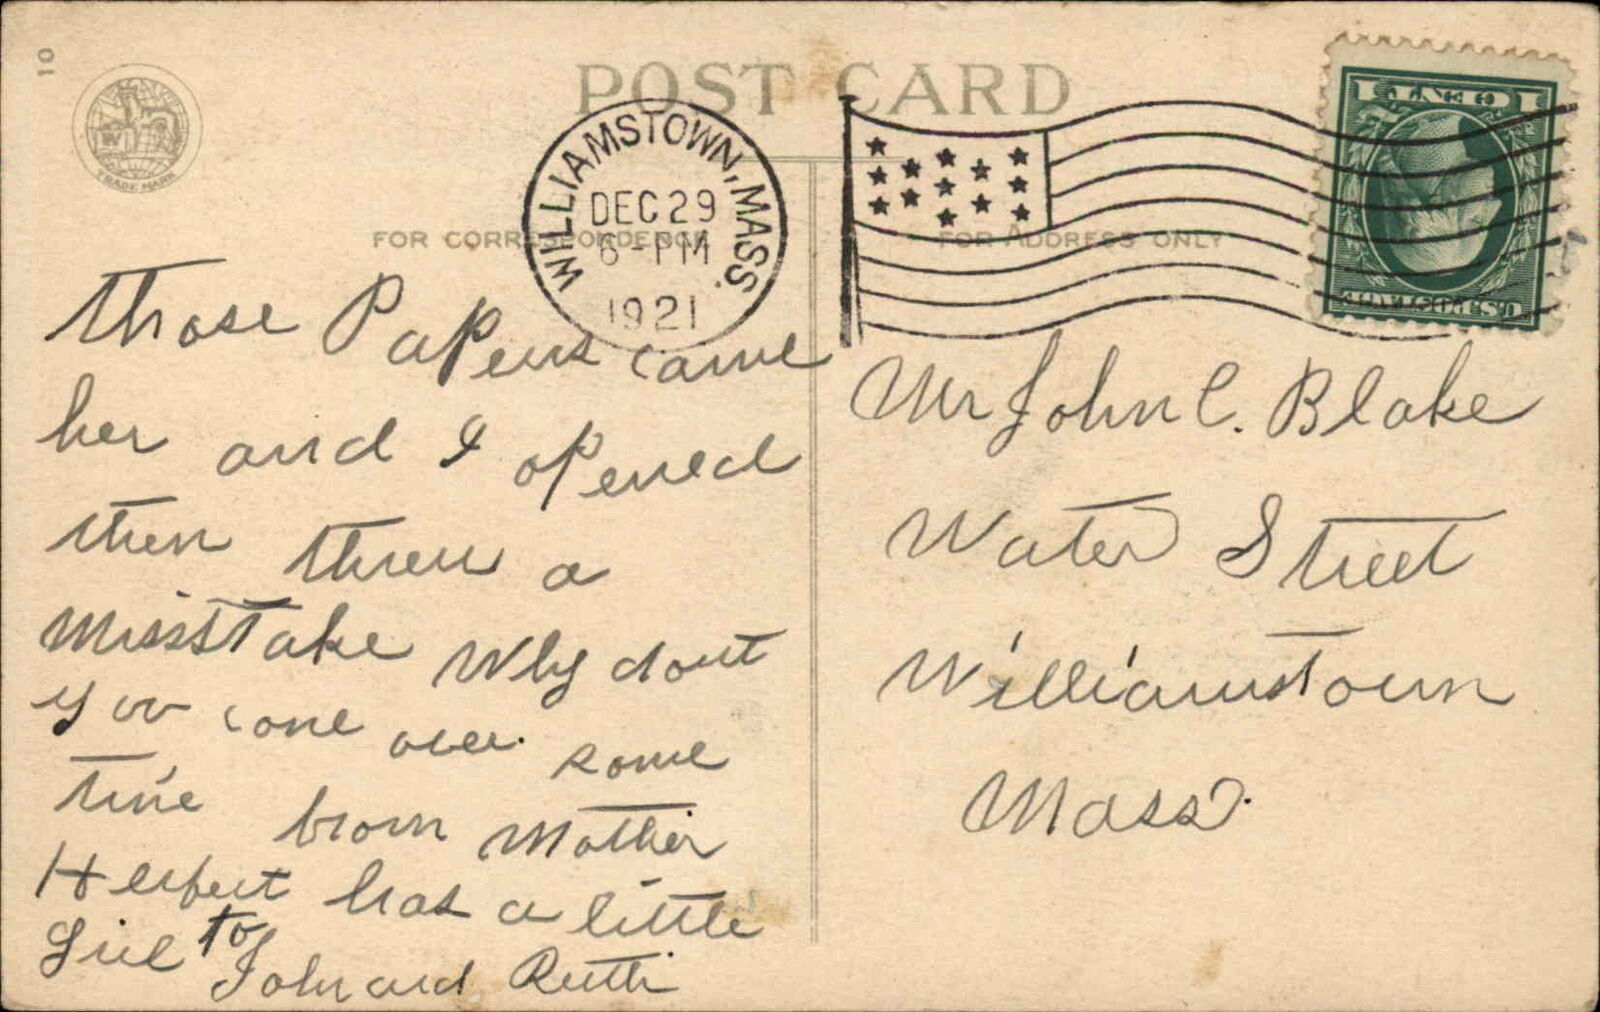 10
TRADE MARK
POST CARD
WILLIAMSTOWN, MASS.
DEC 29
6-PM
1921
FOR CORRESPONDENCE
FOR ADDRESS ONLY
Those Papers came
her and I opened
then threu a
Misstake Why dont
you come over some
time from Mother
Herbert has a little
Girl to John and Ruth
Mr John C. Blake
Water Street
Williamstown
Mass.